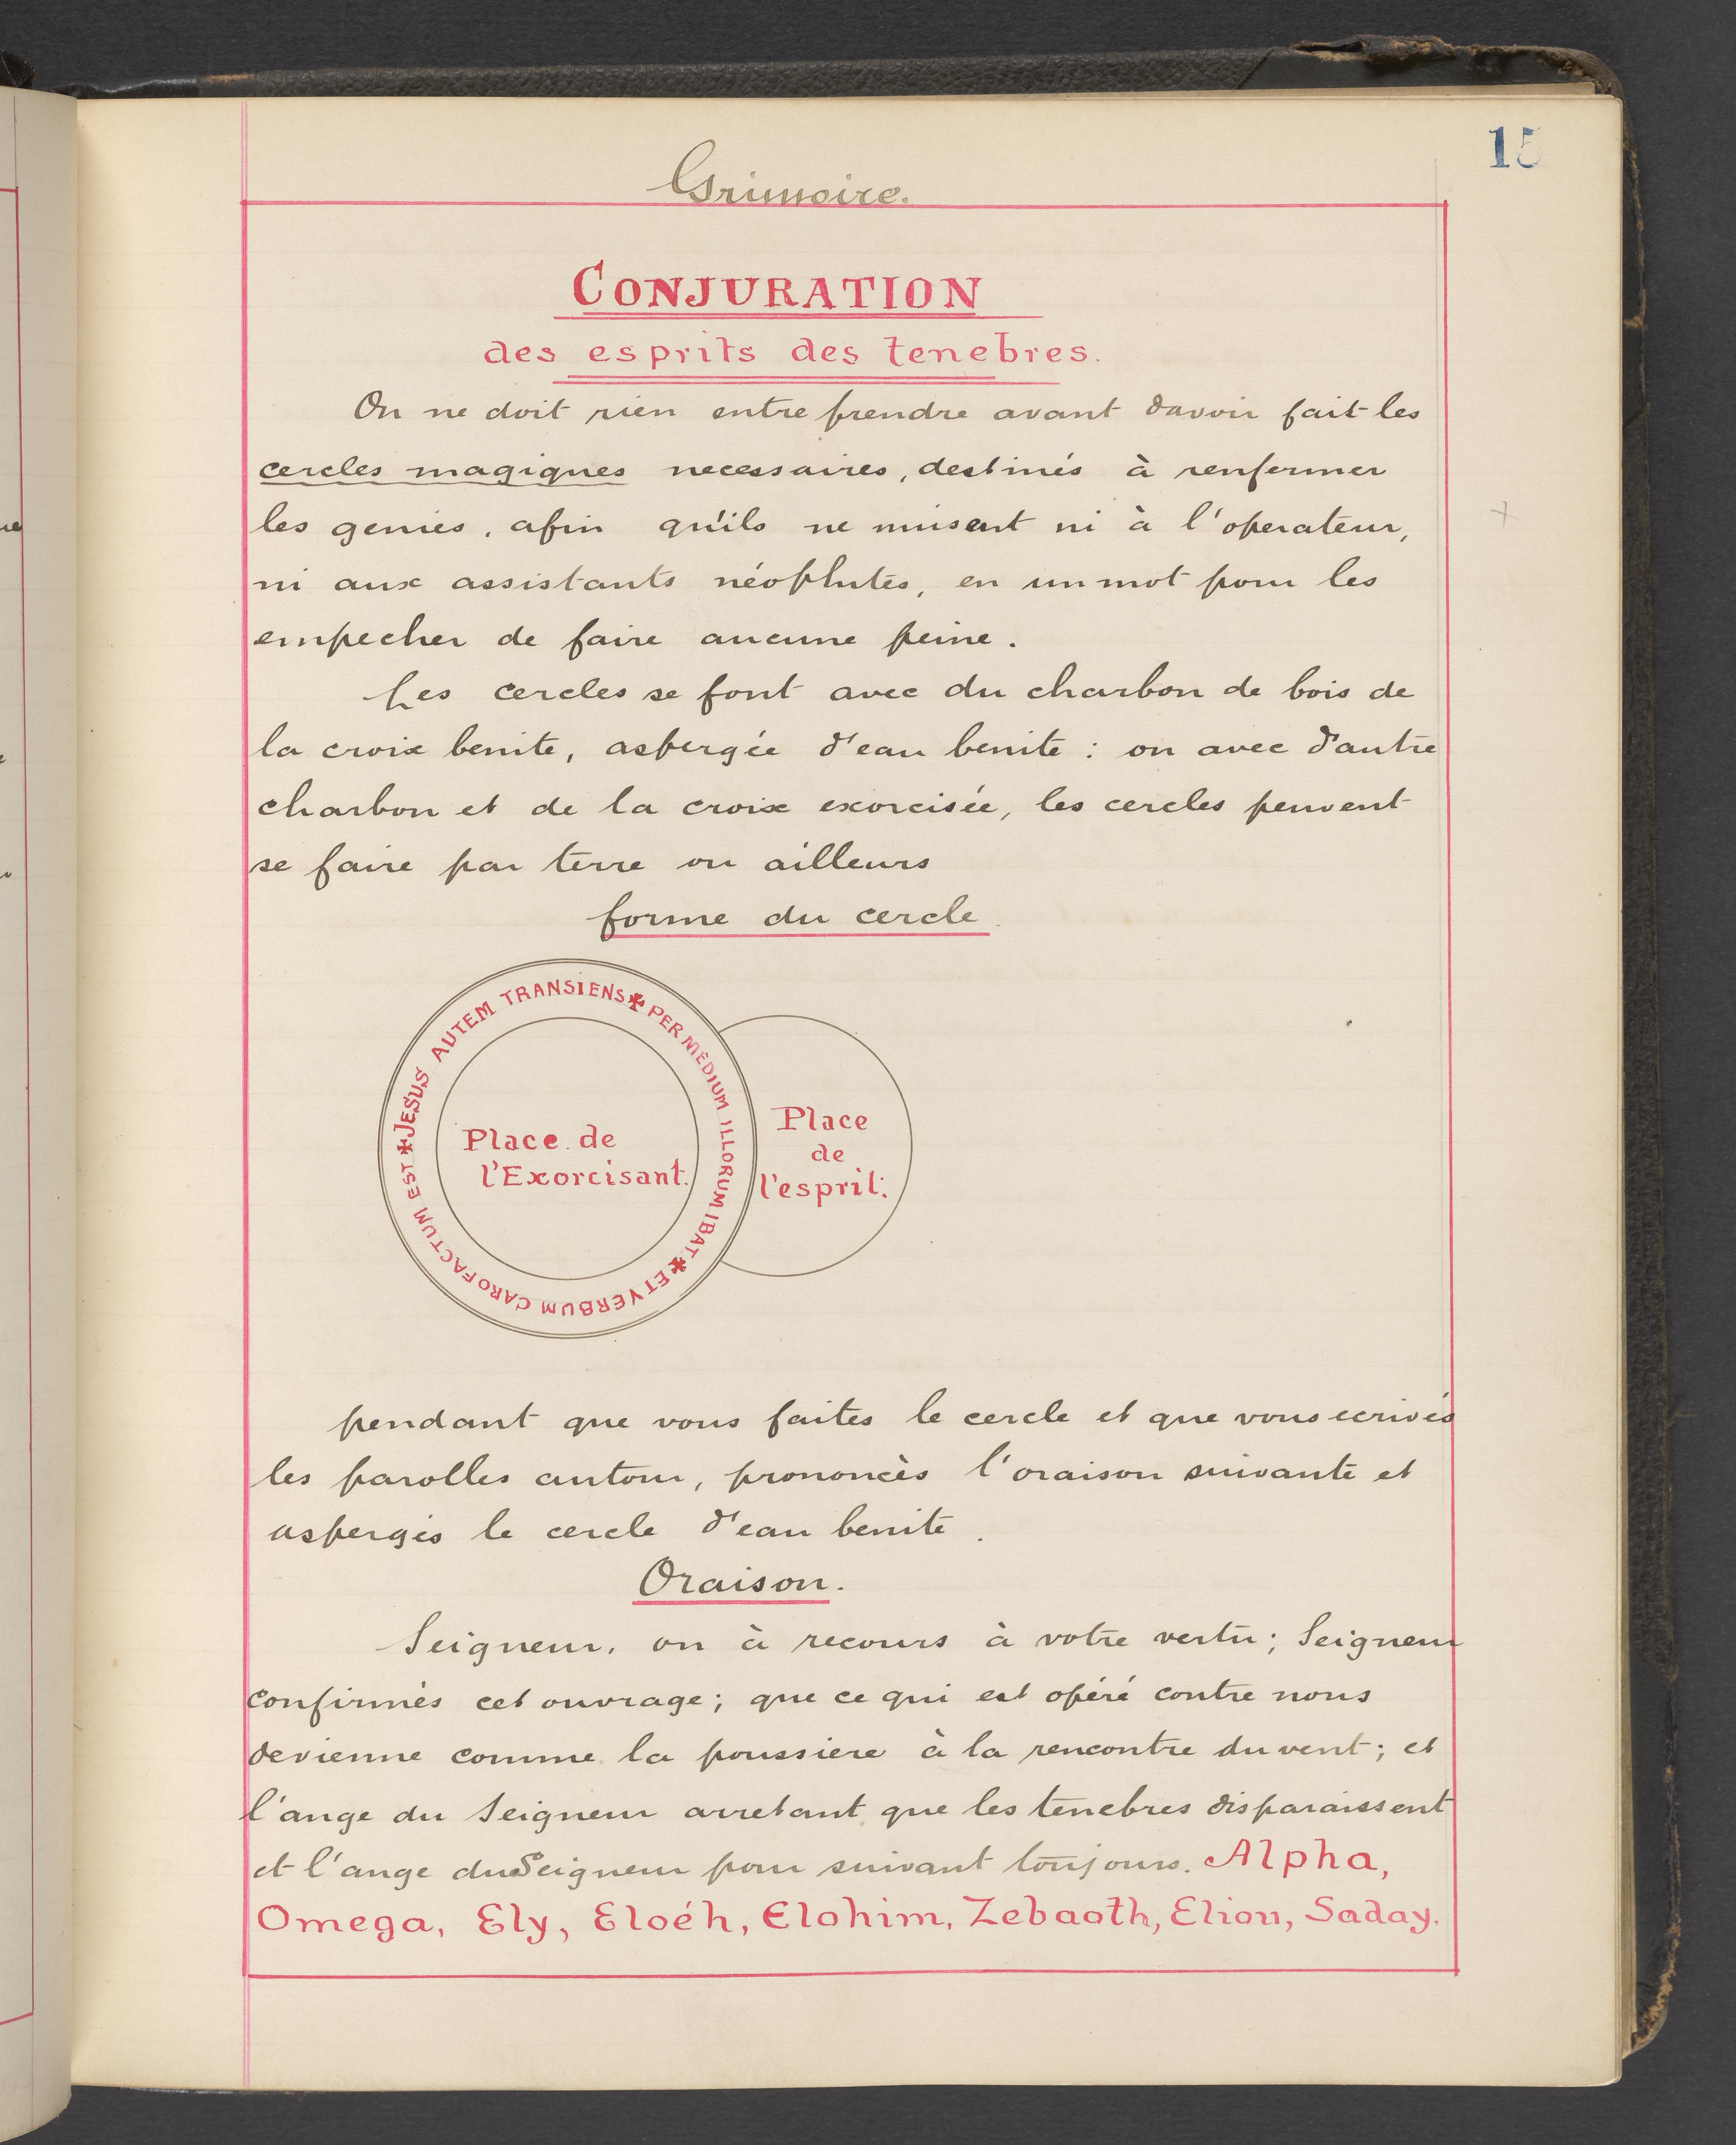 15
Grimoire.
CONJURATION
des esprits des tenebres.
On ne doit rien entreprendre avant davoir fait les
cercles magiques necessaires, destinés à renfermer
les genies, afin qu'ils ne nuisent ni à l'operateur,
ni aux assistants néophites, en un mot pour les
empecher de faire aucune peine.
Les cercles se font avec du charbon de bois de
la croix benite, aspergée d'eau benite : ou avec d'autre
charbon et de la croix exorcisée, les cercles peuvent
se faire par terre ou ailleurs
forme du cercle
✠ JESUS AUTEM TRANSIENS ✠ PER MEDIUM ILLORUM IBAT ✠ ET VERBUM CARO FACTUM EST
Place de
l'Exorcisant.
Place
de
l'esprit.
pendant que vous faites le cercle et que vous ecrivés
les parolles autour, prononcès l'oraison suivante et
aspergés le cercle d'eau benite.
Oraison.
Seigneur, on à recours à votre vertu; Seigneur
confirmès cet ouvrage; que ce qui est opéré contre nous
devienne comme la poussiere à la rencontre du vent; et
l'ange du Seigneur arretant que les tenebres disparaissent
et l'ange du Seigneur poursuivant toujours. Alpha,
Omega, Ely, Eloéh, Elohim, Zebaoth, Eliou, Saday.